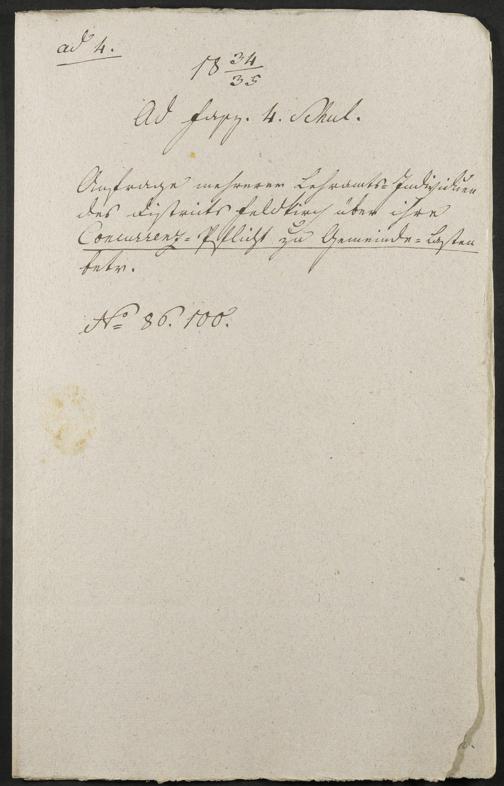 ad 4.
18 34/35
Ad Fasz. 4. Schul.
Anfrage mehrerer Lehramts=Individuen
des Districts Feldkirch über ihre
Concurrenz=Pflicht zu Gemeinde=Lasten
betr.
No 86. 100.